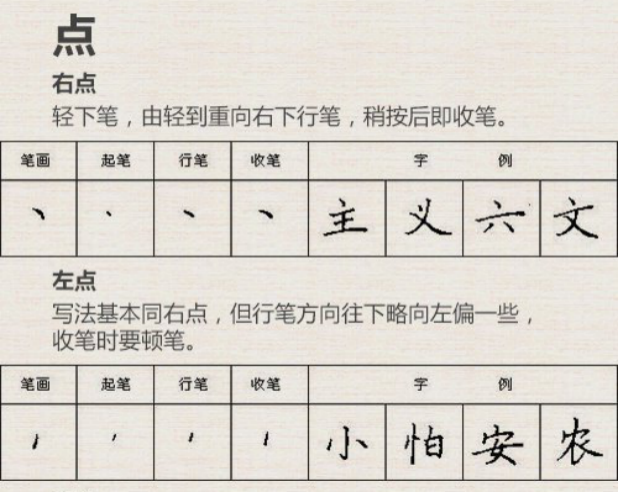 点
右点
轻下笔，由轻到重向右下行笔，稍按后即收笔。
笔画 起笔 行笔 收笔 字 例
主 义 六 文
左点
写法基本同右点，但行笔方向往下略向左偏一些，
收笔时要顿笔。
笔画 起笔 行笔 收笔 字 例
小 怕 安 农